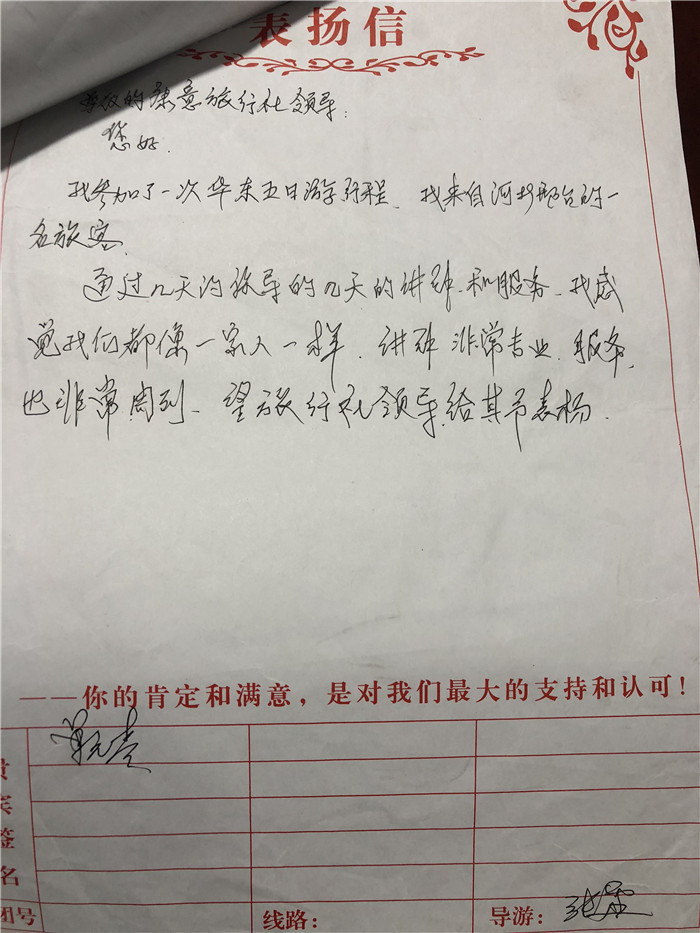 表扬信
尊敬的康意旅行社领导：
您好.
我参加了一次华东五日游行程. 我来自河北邢台的一
名旅客.
通过几天的张导的几天的讲解和服务. 我感
觉我们都像一家人一样. 讲解非常专业. 服务
也非常周到. 望旅行社领导给其予表杨.
——你的肯定和满意，是对我们最大的支持和认可！
贵宾签名
团号
线路：
导游：张